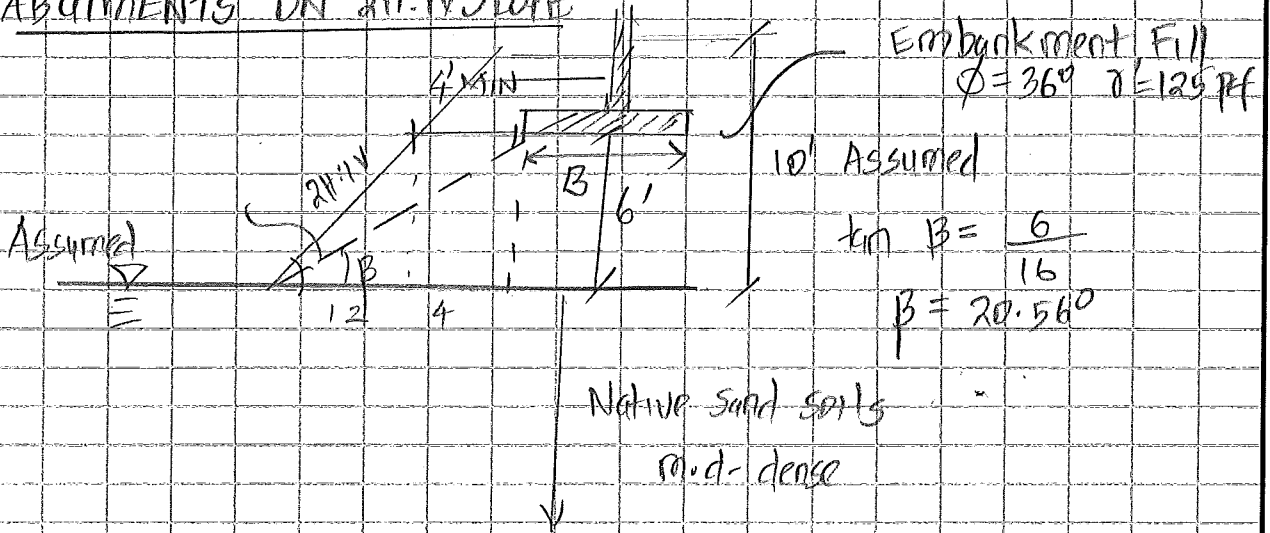 ABUTMENTS ON 2H:1V SLOPE
Embankment Fill
φ = 36° γ = 125 pcf
4' MIN
2H:1V
B
6'
10' Assumed
Assumed
β
12 4
tan β = 6/16
β = 20.56°
Native Sand Soils
m.d-dense